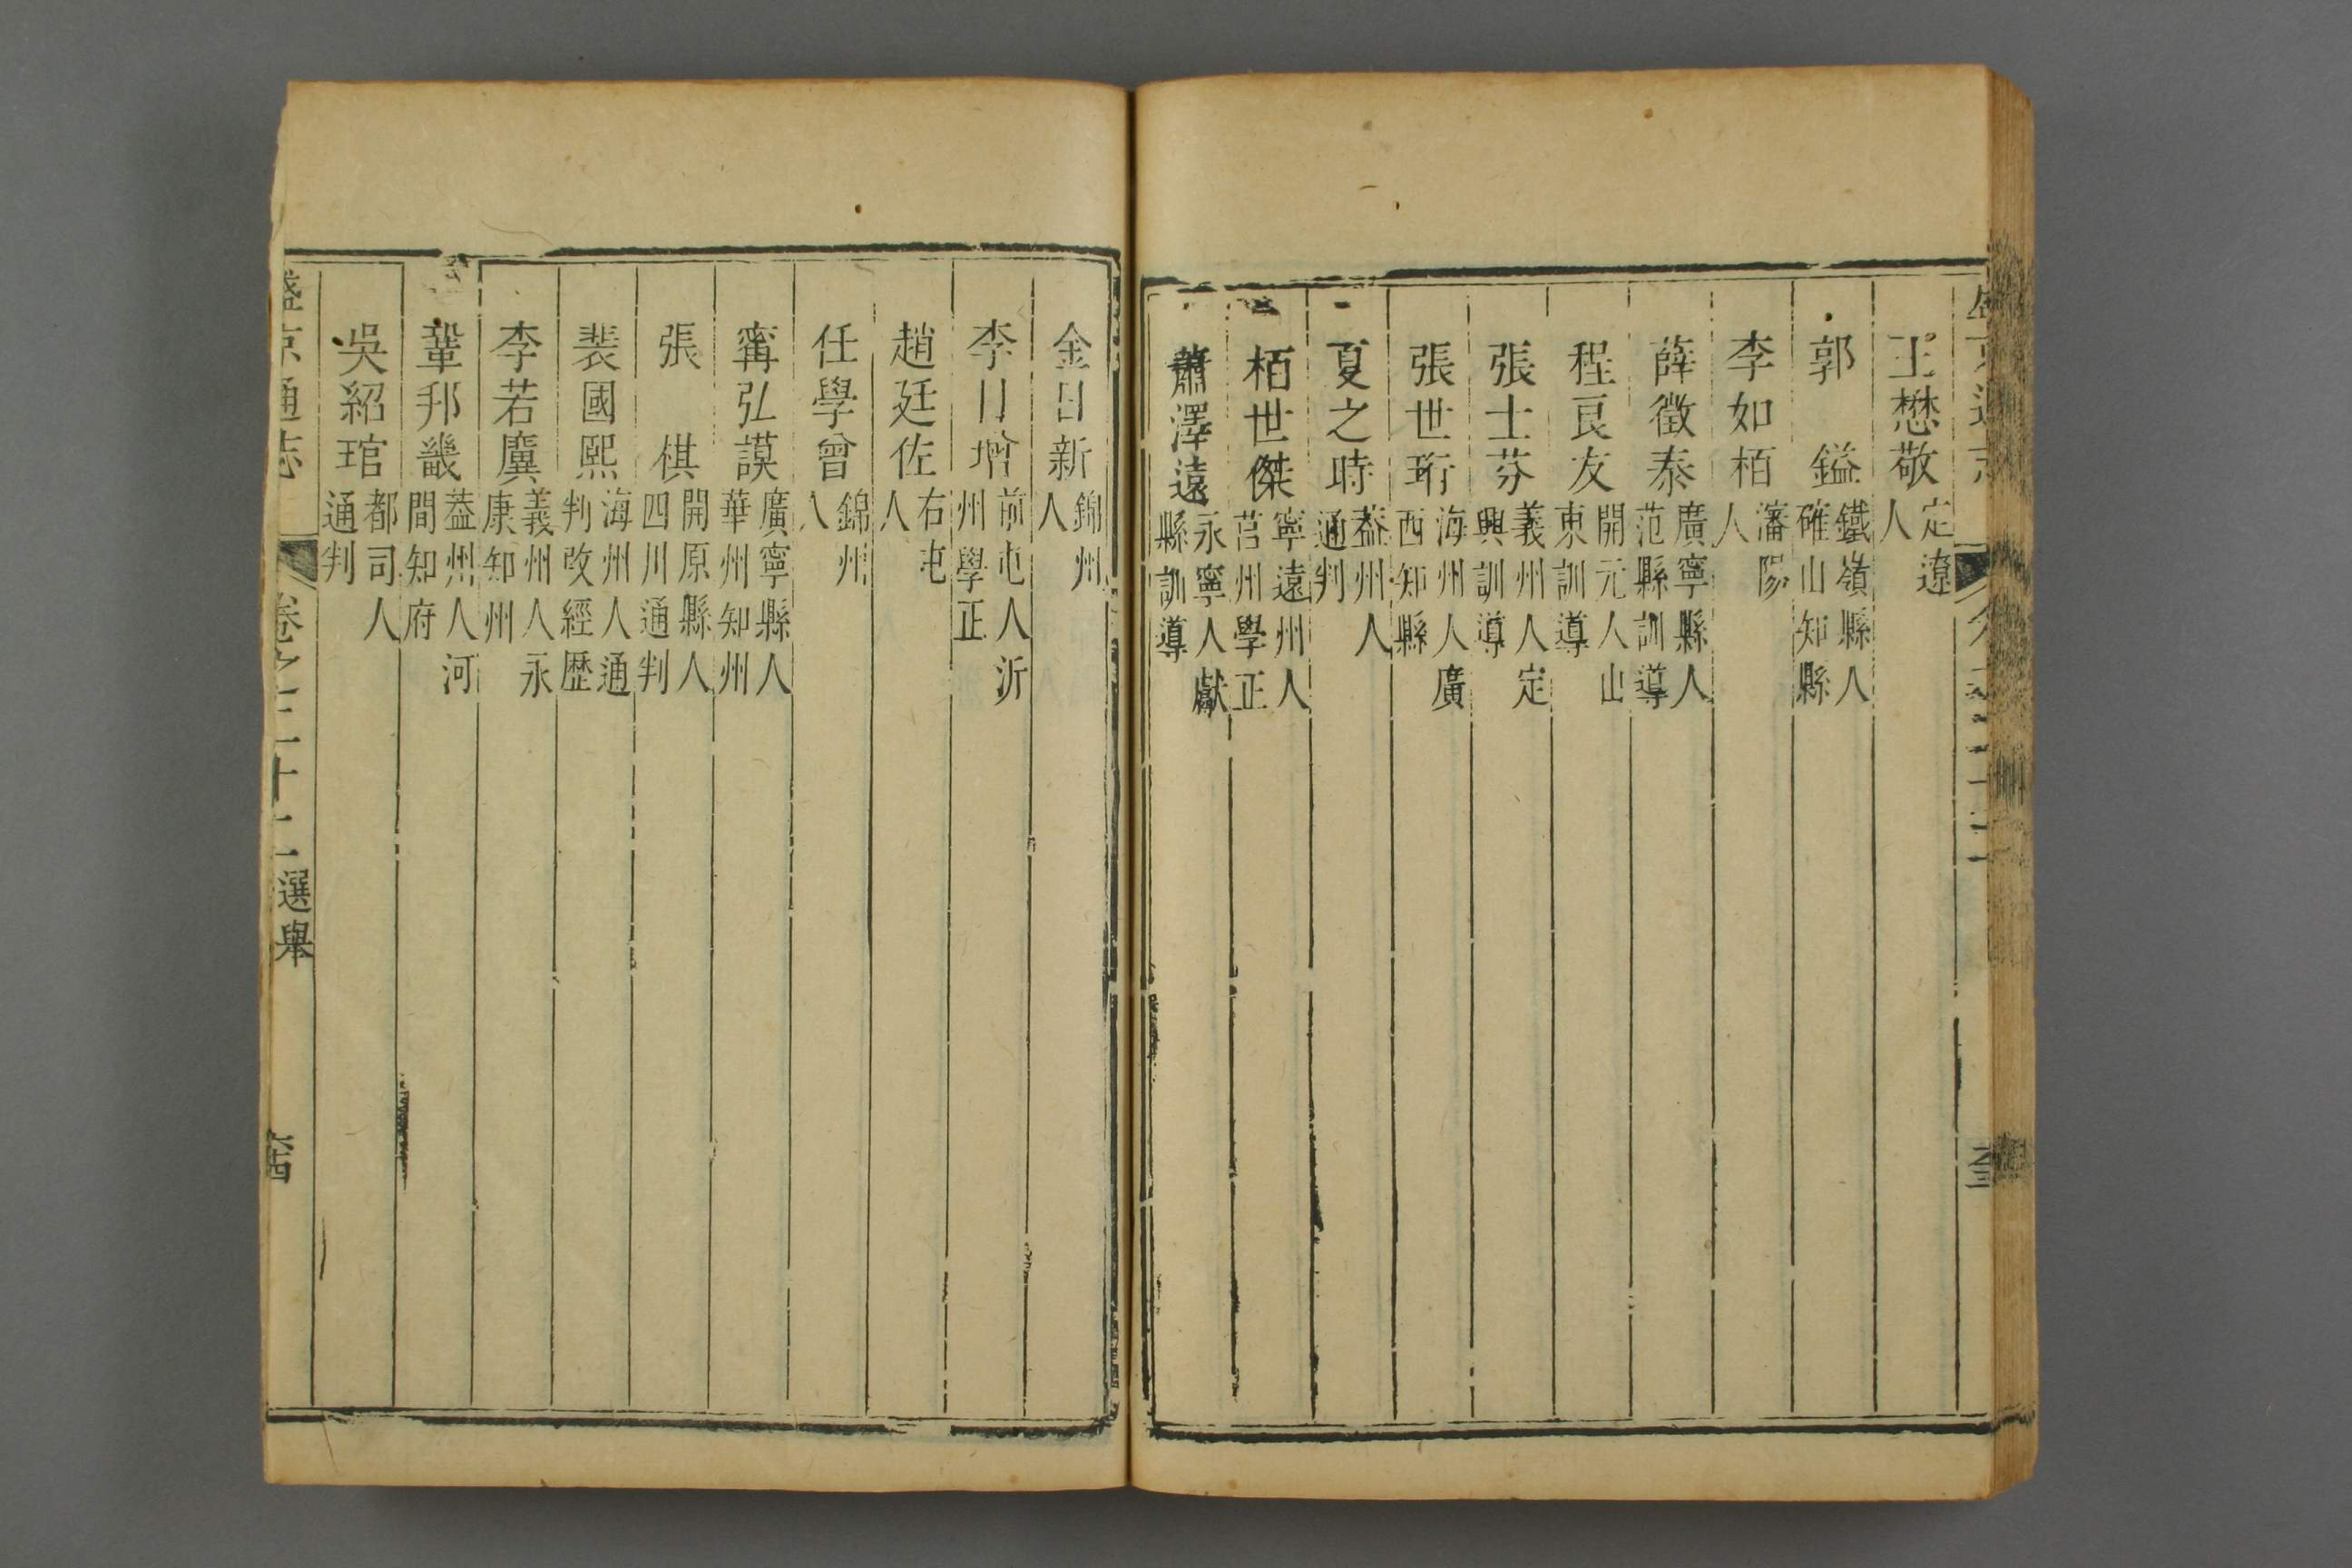 王懋敬定遼人
郭鎰鐵嶺縣人確山知縣
李如栢瀋陽人
薛徵泰廣寧縣人范縣訓導
程良友開元人山東訓導
張士芬義州人定興訓導
張世珩海州人廣西知縣
夏之時葢州人通判
栢世傑寧遠州人莒州學正
蕭澤遠永寧人獻縣訓導
金日新錦州人
李日增前屯人沂州學正
趙廷佐右屯人
任學曾錦州人
寗弘謨廣寧縣人華州知州
張棋開原縣人四川通判
裴國熙海州人通判改經歷
李若廙義州人永康知州
鞏邦畿葢州人河間知府
吳紹琯都司人通判
盛京通志 卷之三十二 選舉